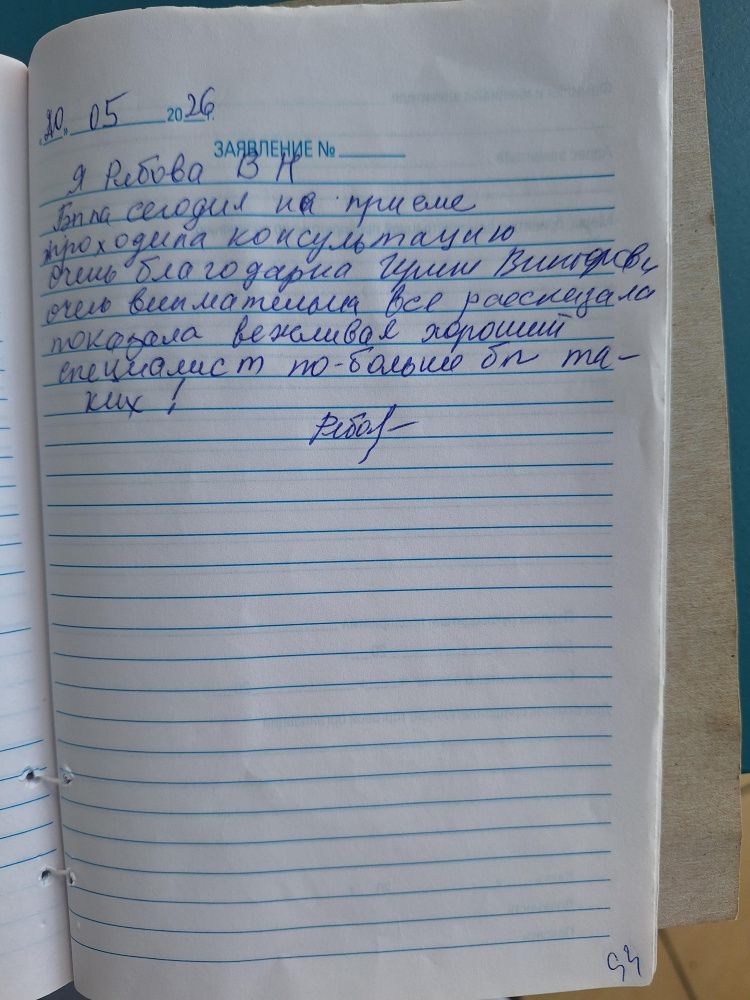 «20» 05 2026г.
ЗАЯВЛЕНИЕ №
Я Рябова В Н
Была сегодня на приеме
проходила консультацию
очень благодарна Ирине
очень внимательна все рассказала
показала вежливая хороший
специалист по-больше бы та-
ких!